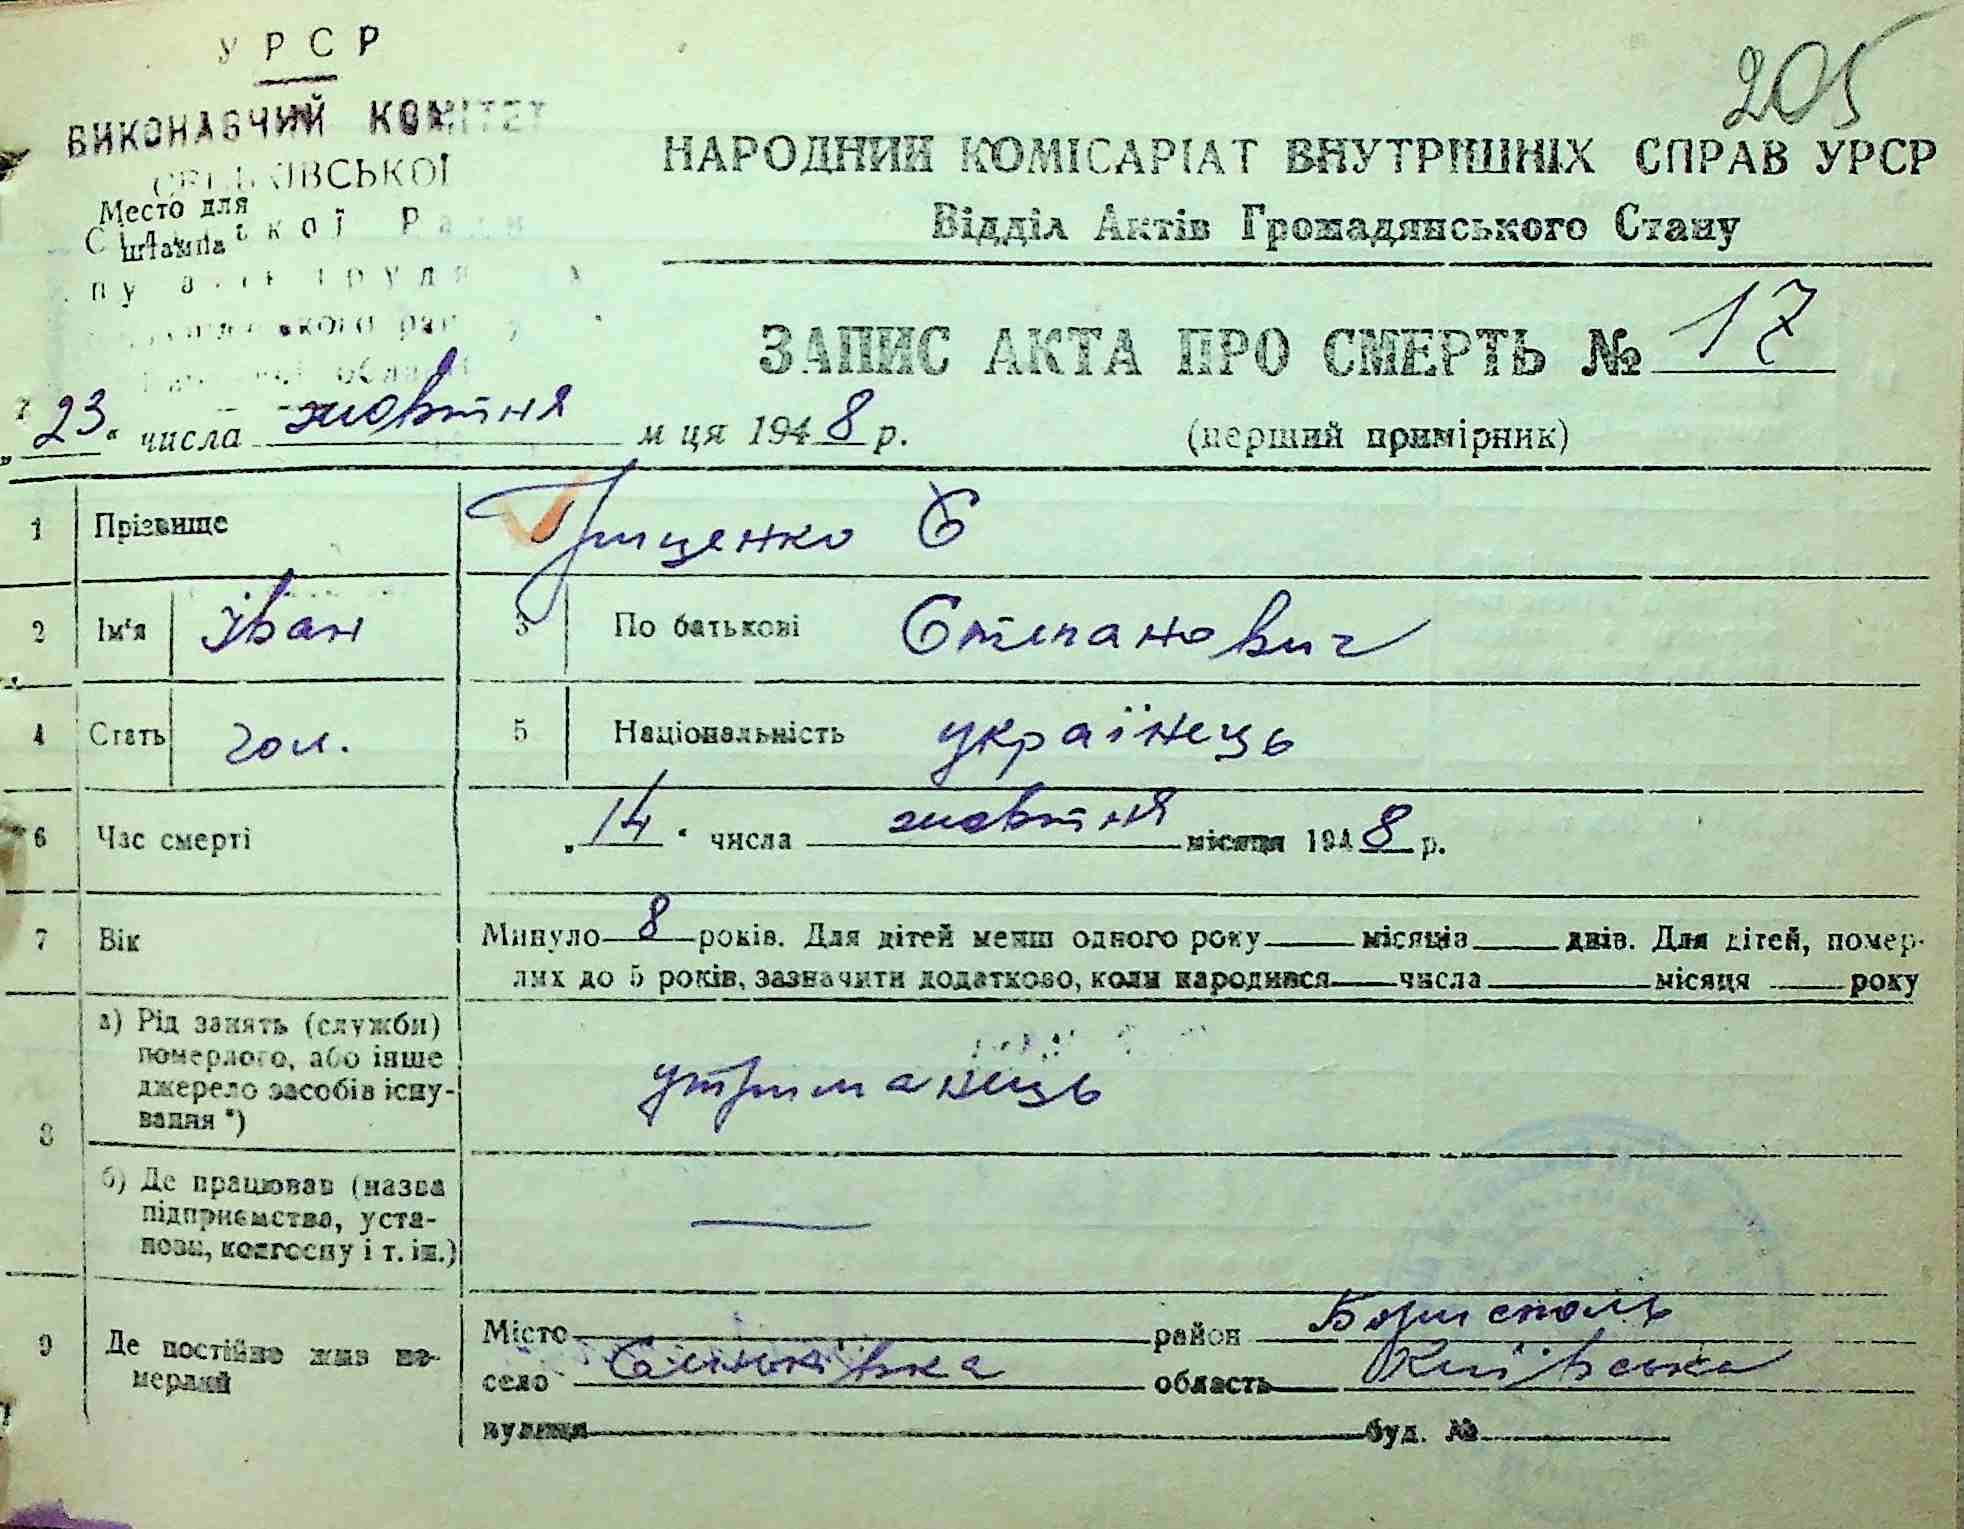 205
УРСР
ВИКОНАВЧИЙ КОМІТЕТ
Место для
штампа
НАРОДНИЙ КОМІСАРІАТ ВНУТРІШНІХ СПРАВ УРСР
Відділ Актів Громадянського Стану
ЗАПИС АКТА ПРО СМЕРТЬ № 17
„23“ числа жовтня м ця 1948 р. (перший примірник)
1 Прізвище Гриценко Є
2 Ім'я Іван 3 По батькові Степанович
4 Стать чол. 5 Національність українець
6 Час смерті „14“ числа жовтня місяця 1948 р.
7 Вік Минуло 8 років. Для дітей менш одного року місяців днів. Для дітей, помер-
лих до 5 років, зазначити додатково, коли народився числа місяця року
8 а) Рід занять (служби)
померлого, або інше
джерело засобів існу-
вання *)
утриманець
б) Де працював (назва
підприємства, уста-
нови, колгоспу і т. ін.)
9 Де постійно жив по-
мерлий
Місто район Бориспаль
село Сеньківка область Київська
вулиця буд. №